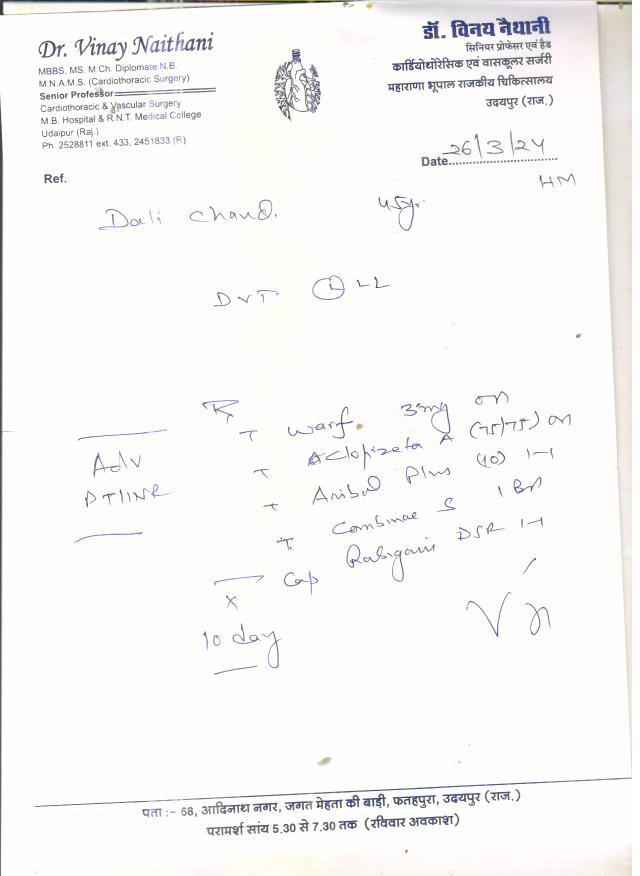 Dr. Vinay Naithani
MBBS, MS. M.Ch. Diplomate N.B.
M.N.A.M.S. (Cardiothoracic Surgery)
Senior Professor
Cardiothoracic & Vascular Surgery
M.B. Hospital & R.N.T. Medical College
Udaipur (Raj.)
Ph. 2528811 ext. 433, 2451833 (R)
डॉ. विनय नैथानी
सिनियर प्रोफेसर एवं हैड
कार्डियोथोरेसिक एवं वासकूलर सर्जरी
महाराणा भूपाल राजकीय चिकित्सालय
उदयपुर (राज.)
Date 26/3/24
Ref.
HM
Dali Chand.
DVT. (L) LL
Rx
T warf. 3mg on
T Clopizeta A (75/75) on
T Plus (10) 1-1
T. S 1 BD
Cap DSR 1-1
Adv
PT/INR
x
10 day
पता :- 68, आदिनाथ नगर, जगत मेहता की बाड़ी, फतहपुरा, उदयपुर (राज.)
परामर्श सांय 5.30 से 7.30 तक (रविवार अवकाश)